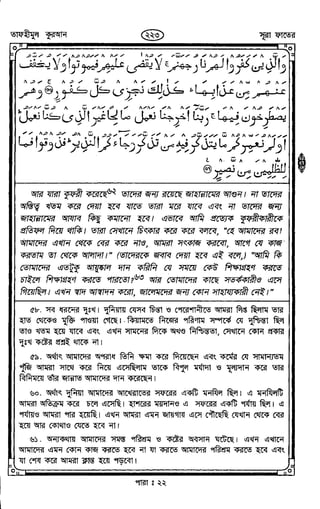 তাফহীমুল কুরআন ২২৩ সূরা ফাতের
وَالَّذِينَ كَفَرُوا لَهُمْ نَارُ جَهَنَّمَ لَا يُقْضَى عَلَيْهِمْ فَيَمُوتُوا وَلَا يُخَفَّفُ
عَنْهُمْ مِنْ عَذَابِهَا كَذَلِكَ نَجْزِي كُلَّ كَفُورٍ ۝ وَهُمْ
يَصْطَرِخُونَ فِيهَا رَبَّنَا أَخْرِجْنَا نَعْمَلْ صَالِحًا غَيْرَ الَّذِي كُنَّا نَعْمَلُ
أَوَلَمْ نُعَمِّرْكُمْ مَا يَتَذَكَّرُ فِيهِ مَنْ تَذَكَّرَ وَجَاءَكُمُ النَّذِيرُ فَذُوقُوا فَمَا
لِلظَّالِمِينَ مِنْ نَصِيرٍ ۝
আর যারা কুফরী করেছে তাদের জন্য রয়েছে জাহান্নামের আগুন। না তাদের
অস্তিত্ব খতম করে দেয়া হবে যাতে তারা মরে যাবে এবং না তাদের জন্য
জাহান্নামের আযাব কিছু কমানো হবে। এভাবে আমি প্রত্যেক কুফরীকারীকে
প্রতিফল দিয়ে থাকি। তারা সেখানে চিৎকার করে করে বলবে, "হে আমাদের রব!
আমাদের এখান থেকে বের করে নাও, আমরা সৎকাজ করবো, আগে যে কাজ
করতাম তা থেকে আলাদা।" (তাদেরকে জবাব দেয়া হবে এই বলে,) "আমি কি
তোমাদের এতটুকু আয়ুষ্কাল দান করিনি যে সময়ে কেউ শিক্ষাগ্রহণ করতে
চাইলে শিক্ষাগ্রহণ করতে পারতো? আর তোমাদের কাছে সতর্ককারীও এসে
গিয়েছিল। এখন স্বাদ আস্বাদন করো, জালেমদের জন্য কোন সাহায্যকারী নেই।"
৫৮. সব ধরনের দুঃখ। দুনিয়ায় যেসব চিন্তা ও পেরেশানীতে আমরা লিপ্ত ছিলাম তার
হাত থেকেও মুক্তি পাওয়া গেছে। কিয়ামতে নিজের পরিণাম সম্পর্কে যে দুশ্চিন্তা ছিল
তাও খতম হয়ে গেছে এবং এখন সামনের দিকে অখণ্ড নিশ্চিন্ততা, সেখানে কোন প্রকার
দুঃখ কষ্টের প্রশ্নই থাকে না।
৫৯. অর্থাৎ আমাদের অপরাধ তিনি ক্ষমা করে দিয়েছেন এবং কর্মের যে সামান্যতম
পুঁজি আমরা সাথে করে নিয়ে এসেছিলাম তাকে বিপুল মর্যাদা ও মূল্যদান করে তার
বিনিময়ে তাঁর জান্নাত আমাদের দান করেছেন।
৬০. অর্থাৎ দুনিয়া আমাদের আখেরাতের সফরের একটি মনযিল ছিল। এ মনযিলটি
আমরা অতিক্রম করে চলে এসেছি। হাশরের ময়দানও এ সফরের একটি পর্যায় ছিল। এ
পর্যায়ও আমরা পার হয়েছি। এখন আমরা এমন জায়গায় এসে পৌঁছেছি যেখান থেকে বের
হয়ে আর কোথাও যেতে হবে না।
৬১. অন্যকথায় আমাদের সমস্ত পরিশ্রম ও কষ্টের অবসান ঘটেছে। এখন এখানে
আমাদের এমন কোন কাজ করতে হবে না যা করতে আমাদের পরিশ্রম করতে হবে এবং
যা শেষ করে আমরা ক্লান্ত হয়ে পড়বো।
পারা : ২২